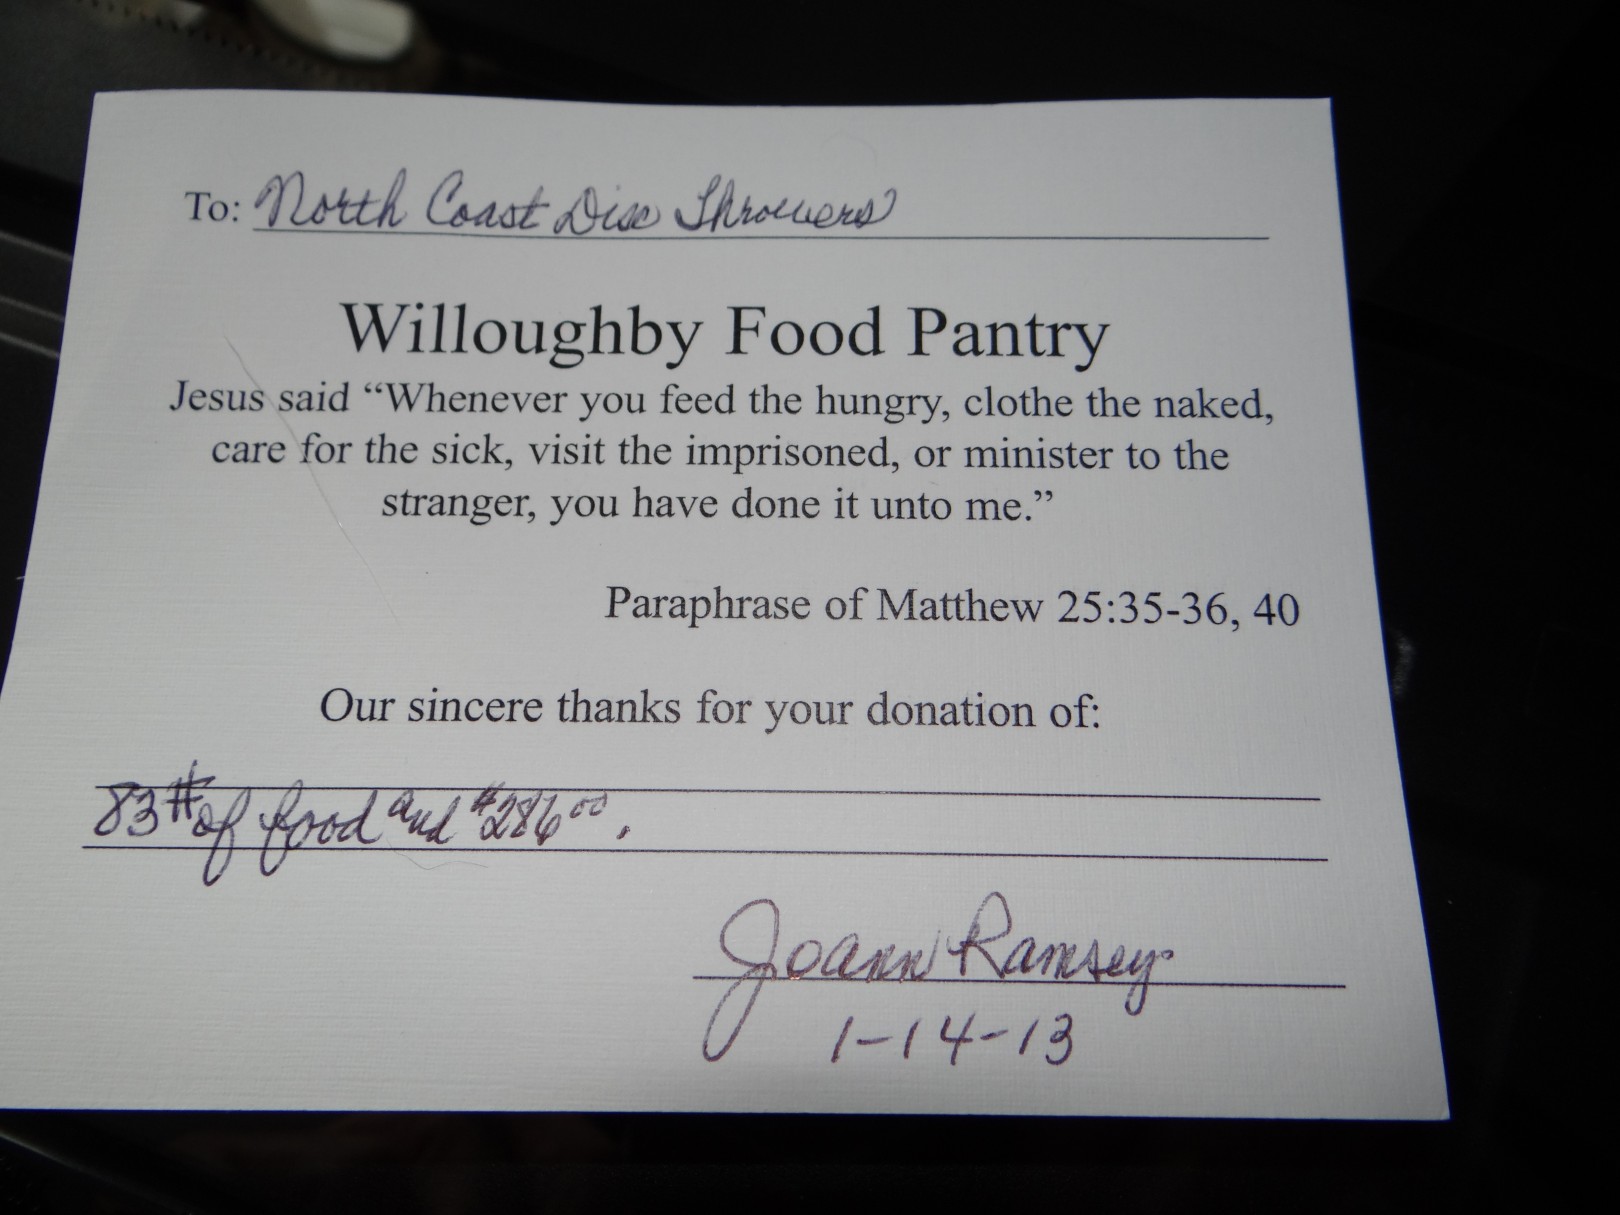 To: North Coast Disc Throwers
Willoughby Food Pantry
Jesus said “Whenever you feed the hungry, clothe the naked,
care for the sick, visit the imprisoned, or minister to the
stranger, you have done it unto me.”
Paraphrase of Matthew 25:35-36, 40
Our sincere thanks for your donation of:
83# of food and $286.00.
Joann Ramsey
1-14-13